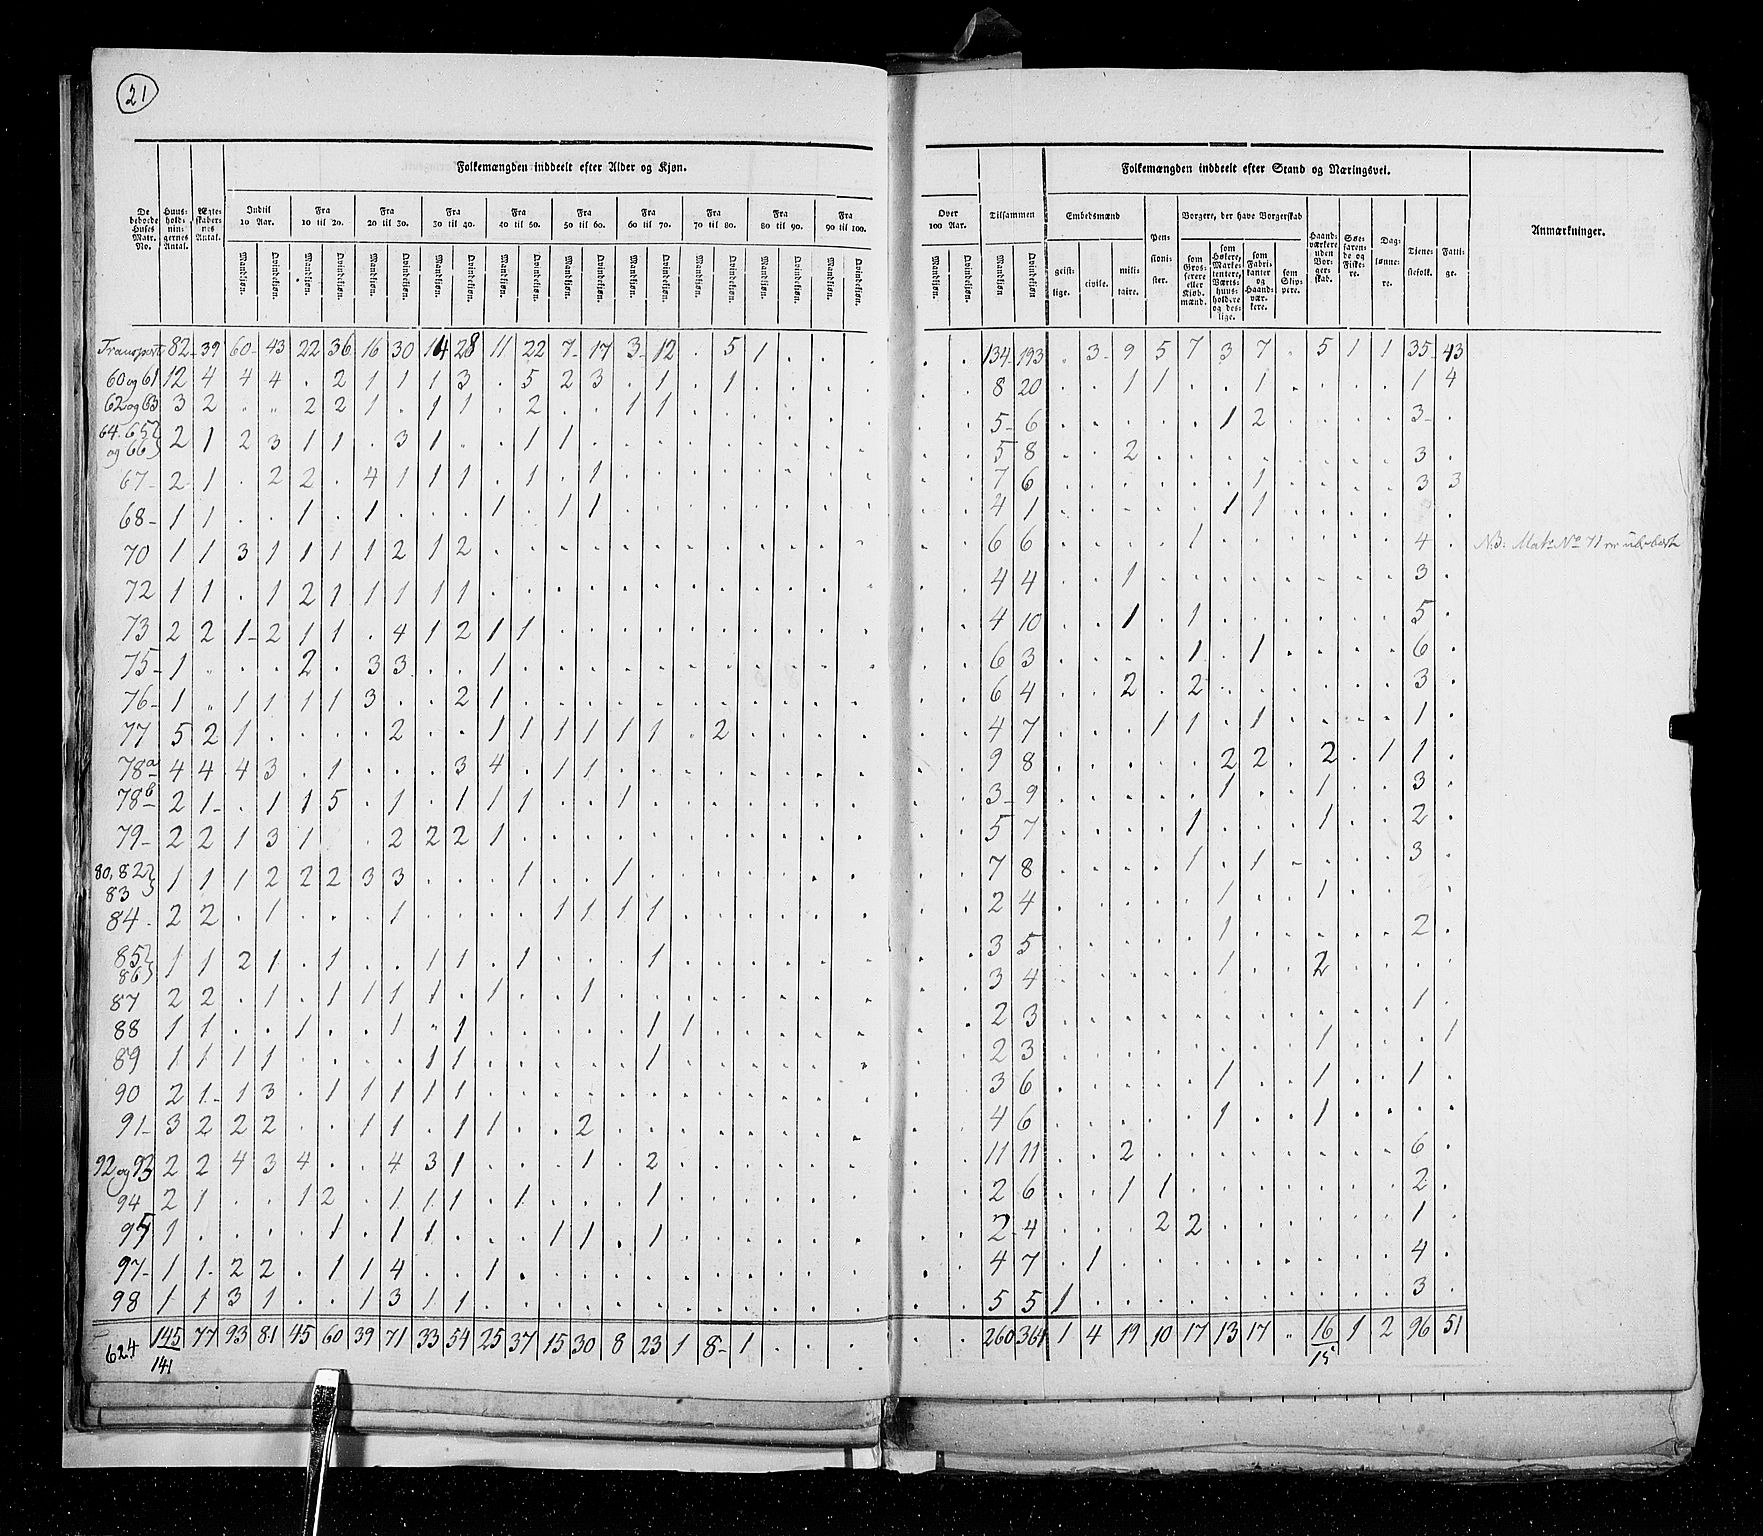 21
Folkemængden inddeelt efter Alder og Kjøn.
Folkemængden inddeelt efter Stand og Næringsvei.
De beboede Huses Matr. No. | Huusholdningernes Antal. | Ægteskabernes Antal. | Indtil 10 Aar. | Fra 10 til 20. | Fra 20 til 30. | Fra 30 til 40. | Fra 40 til 50. | Fra 50 til 60. | Fra 60 til 70. | Fra 70 til 80. | Fra 80 til 90. | Fra 90 til 100. | Over 100 Aar. | Tilsammen | Embedsmænd | Pensionister. | Borgere, der have Borgerskab | Haandværkere uden Borgerskab. | Søefarende og Fiskere. | Dagslønnere. | Tjenestefolk. | Fattige. | Anmærkninger.
Mandkjøn. Qvindekjøn. Mandkjøn. Qvindekjøn. Mandkjøn. Qvindekjøn. Mandkjøn. Qvindekjøn. Mandkjøn. Qvindekjøn. Mandkjøn. Qvindekjøn. Mandkjøn. Qvindekjøn. Mandkjøn. Qvindekjøn. Mandkjøn. Qvindekjøn. Mandkjøn. Qvindekjøn. Mandkjøn. Qvindekjøn. Mandkjøn Qvindekjøn geistlige. civile. militaire. som Grosserere eller Kjøbmænd. som Høkere, Marketentere, Værtshuusholdere og deslige. som Fabrikanter og Haandværkere. som Skippere.
Transport 82 39 60 43 22 36 16 30 14 28 11 22 7 17 3 12 . 5 1 . . . . . 134 193 . 3 9 5 7 3 7 . 5 1 1 35 43
60 og 61 12 4 4 4 . 2 1 1 1 3 . 5 2 3 . 1 . 1 . . . . . . 8 20 . . 1 1 . . 1 . . . . 1 4
62 og 63 3 2 " " 2 2 1 . 1 1 . 2 . . 1 1 . . . . . . . . 5 6 . . . . . 1 2 . . . . 3 .
64. 65 og 66 2 1 2 3 1 1 . 3 1 . . 1 1 . . . . . . . . . . . 5 8 . . 2 . . . . . . . . 3 .
67 2 1 . 2 2 . 4 1 1 1 . 1 . 1 . . . . . . . . . . 7 6 . . . . . . 1 . . . . 3 3
68 1 1 . . 1 . 1 . . . 1 . 1 1 . . . . . . . . . . 4 1 . . . . . 1 1 . . . . . .
70 1 1 3 1 1 1 1 2 1 2 . . . . . . . . . . . . . . 6 6 . . . . 1 . . . . . . 4 . N.B. Matr. No 71 er ubeboet
72 1 1 . 1 2 1 1 1 1 1 . . . . . . . . . . . . . . 4 4 . . 1 . . . . . . . . 3 .
73 2 2 1 2 1 1 . 4 1 2 1 1 . . . . . . . . . . . . 4 10 . . 1 . 1 . . . . . . 5 .
75 1 . . . 2 . 3 3 . . 1 . . . . . . . . . . . . . 6 3 . . . . 1 . 1 . . . . 6 .
76 1 " 1 1 1 1 3 . . 2 1 . . . . . . . . . . . . . 6 4 . . 2 . 2 . . . . . . 3 .
77 5 2 1 . . . . 2 . . 1 1 1 1 1 1 . 2 . . . . . . 4 7 . . . 1 1 . 1 . . . . 1 .
78a 4 4 4 3 . 1 . . . 3 4 . 1 1 . . . . . . . . . . 9 8 . . . . . 2 2 . 2 . 1 1 .
78b 2 1 . 1 1 5 . 1 . 1 1 1 . . 1 . . . . . . . . . 3 9 . . . . . 1 . . 1 . . 3 .
79 2 2 1 3 1 . . 2 2 2 1 . . . . . . . . . . . . . 5 7 . . . . 1 . . . 1 . . 2 .
80, 82 83 1 1 1 2 2 2 3 3 . . . 1 . . 1 . . . . . . . . . 7 8 . . . . 1 . 1 . . . . 3 .
84 2 2 . 1 . . . 1 . . . . 1 1 1 1 . . . . . . . . 2 4 . . . . . 1 . . 1 . . . .
85 86 1 1 2 1 . 1 . . 1 1 . 1 . . . 1 . . . . . . . . 3 5 . . . . . 1 . . . . . 2 .
87 2 2 . 1 . 1 1 1 1 . 1 . . 1 . . . . . . . . . . 3 4 . . . . . 1 . . 2 . . . .
88 1 1 . . 1 . . 1 " 1 . . . . . 1 1 . . . . . . . 2 3 . . . . . . . . . . . 1 .
89 1 1 1 1 . . . . 1 1 . . . . . 1 . . . . . . . . 2 3 . . . . . . . . 1 . . . 1
90 2 1 1 3 . 1 1 1 1 1 . . . . . . . . . . . . . . 3 6 . . . . . 1 . . 1 . . 1 .
91 3 2 2 2 . . 1 1 . 1 1 . . 2 . . . . . . . . . . 4 6 . . . . . 1 . . 1 . . . .
92 og 93 2 2 4 3 4 . . 4 3 1 . . . 1 . 2 . . . . . . . . 11 11 . . 2 . . . . . . . . 6 .
94 2 1 . . 1 2 . 1 1 1 . 1 . . . 1 . . . . . . . . 2 6 . . 1 1 . . . . . . . 2 .
95 1 . . . . 1 . 1 1 . . . 1 1 . 1 . . . . . . . . 2 4 . . . 2 2 . . . . . . 1 .
97 1 1 2 2 . 1 1 4 . . 1 . . . . . . . . . . . . . 4 7 . 1 . . . . . . . . . 4 .
98 1 1 3 1 . . 1 3 1 1 . . . . . . . . . . . . . . 5 5 1 . . . . . . . . . . 3 .
624 145 77 93 81 45 60 39 71 33 54 25 37 15 30 8 23 1 8 1 . . . . . 260 364 1 4 19 10 17 13 17 " 16 1 2 96 51
141 15